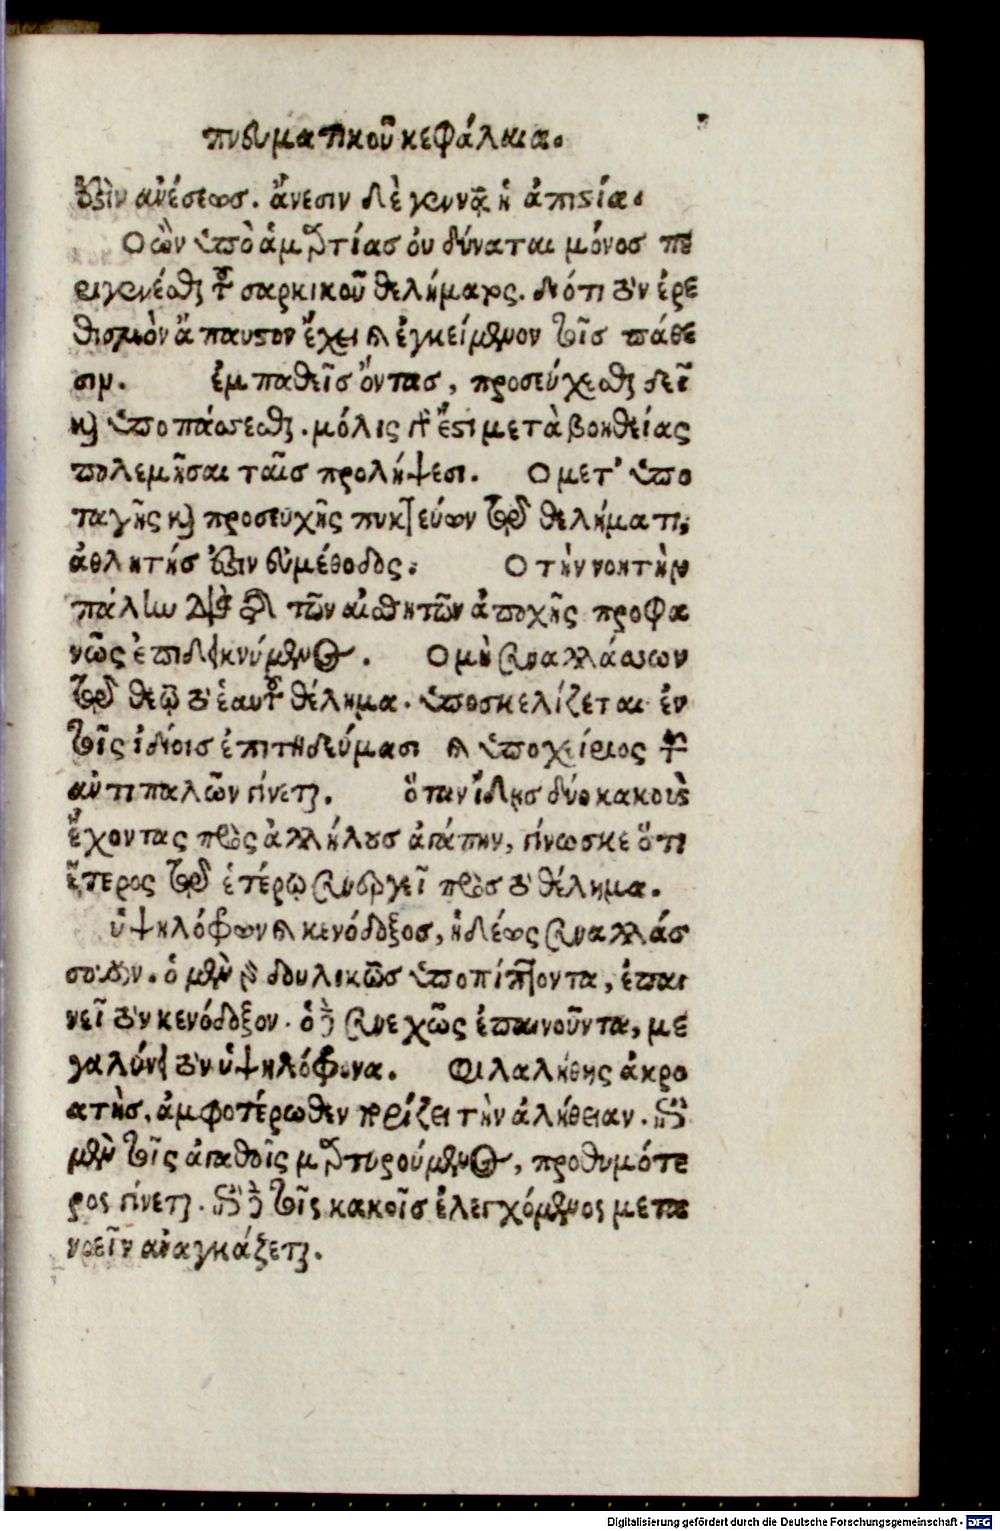 πνευματικοῦ κεφάλαια.
ἐστὶν ἀνέσεως. ἄνεσιν δὲ γεννᾷ ἡ ἀπιστία.
Ο ὢν ὑπὸ ἁμαρτίας οὐ δύναται μόνος πε
ριγενέσθαι τοῦ σαρκικοῦ θελήματος. διότι τὸν ἐρε
θισμὸν ἄπαυστον ἔχει καὶ ἐγκείμενον τοῖς πάθε
σιν. ἐμπαθεῖς ὄντας, προσεύχεσθαι δεῖ
καὶ ὑποτάσσεσθαι. μόλις γάρ ἐστι μετὰ βοηθείας
πολεμῆσαι ταῖς προλήψεσι. Ο μετ' ὑπο
ταγῆς καὶ προσευχῆς πυκτεύων τῷ θελήματι,
ἀθλητής ἐστιν εὐμέθοδος. Ο τὴν νοητὴν
πάλην διὰ τῆς τῶν αἰσθητῶν ἀποχῆς προφα
νῶς ἐπιδεικνύμενος. Ο μὴ συναλλάσσων
τῷ θεῷ τὸ ἑαυτοῦ θέλημα. ὑποσκελίζεται ἐν
τοῖς ἰδίοις ἐπιτηδεύμασι καὶ ὑποχείριος τῶν
ἀντιπάλων γίνεται. ὅταν ἴδῃς δύο κακοὺς
ἔχοντας πρὸς ἀλλήλους ἀγάπην, γίνωσκε ὅτι
ἕτερος τῷ ἑτέρῳ συνεργεῖ πρὸς τὸ θέλημα.
ὑψηλόφρων καὶ κενόδοξος, ἡδέως συναλλάσ
σουσιν. ὁ μὲν γὰρ δουλικῶς ὑποπίπτοντα, ἐπαι
νεῖ τὸν κενόδοξον. ὁ δὲ συνεχῶς ἐπαινοῦντα, με
γαλύνει τὸν ὑψηλόφρονα. Φιλαλήθης ἀκρο
ατὴς, ἀμφοτέρωθεν κερδίζει τὴν ἀλήθειαν. ἐπὶ
μὲν τοῖς ἀγαθοῖς μαρτυρούμενος, προθυμότε
ρος γίνεται. ἐπὶ δὲ τοῖς κακοῖς ἐλεγχόμενος μετα
νοεῖν ἀναγκάζεται.
Digitalisierung gefördert durch die Deutsche Forschungsgemeinschaft - DFG